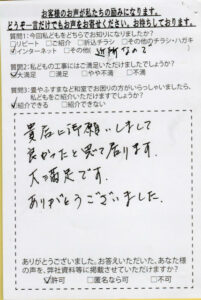 お客様のお声が私たちの励みになります。
どうぞ一言だけでもお声をお寄せください。お待ちしております。
質問1:今回私どもをどちらでお知りになりましたか?
□リピート □ご紹介 □折込チラシ □その他のチラシ・ハガキ
☑インターネット □その他( 近所なので )
質問2:私どもの工事にはご満足いただけましたでしょうか?
☑大満足 □満足 □やや不満 □不満
質問3:畳やふすまなど和室でお困りの方がいらっしゃいましたら、
私どもをご紹介いただけますでしょうか?
☑紹介できる □紹介できない
貴店に御願いしまして
良かったと思て居ります。
大満足です。
ありがとうございました。
ありがとうございました。お答えいただいた、あなた様
の声を、弊社資料等に掲載させていただけますか?
☑許可 □匿名なら可 □不可